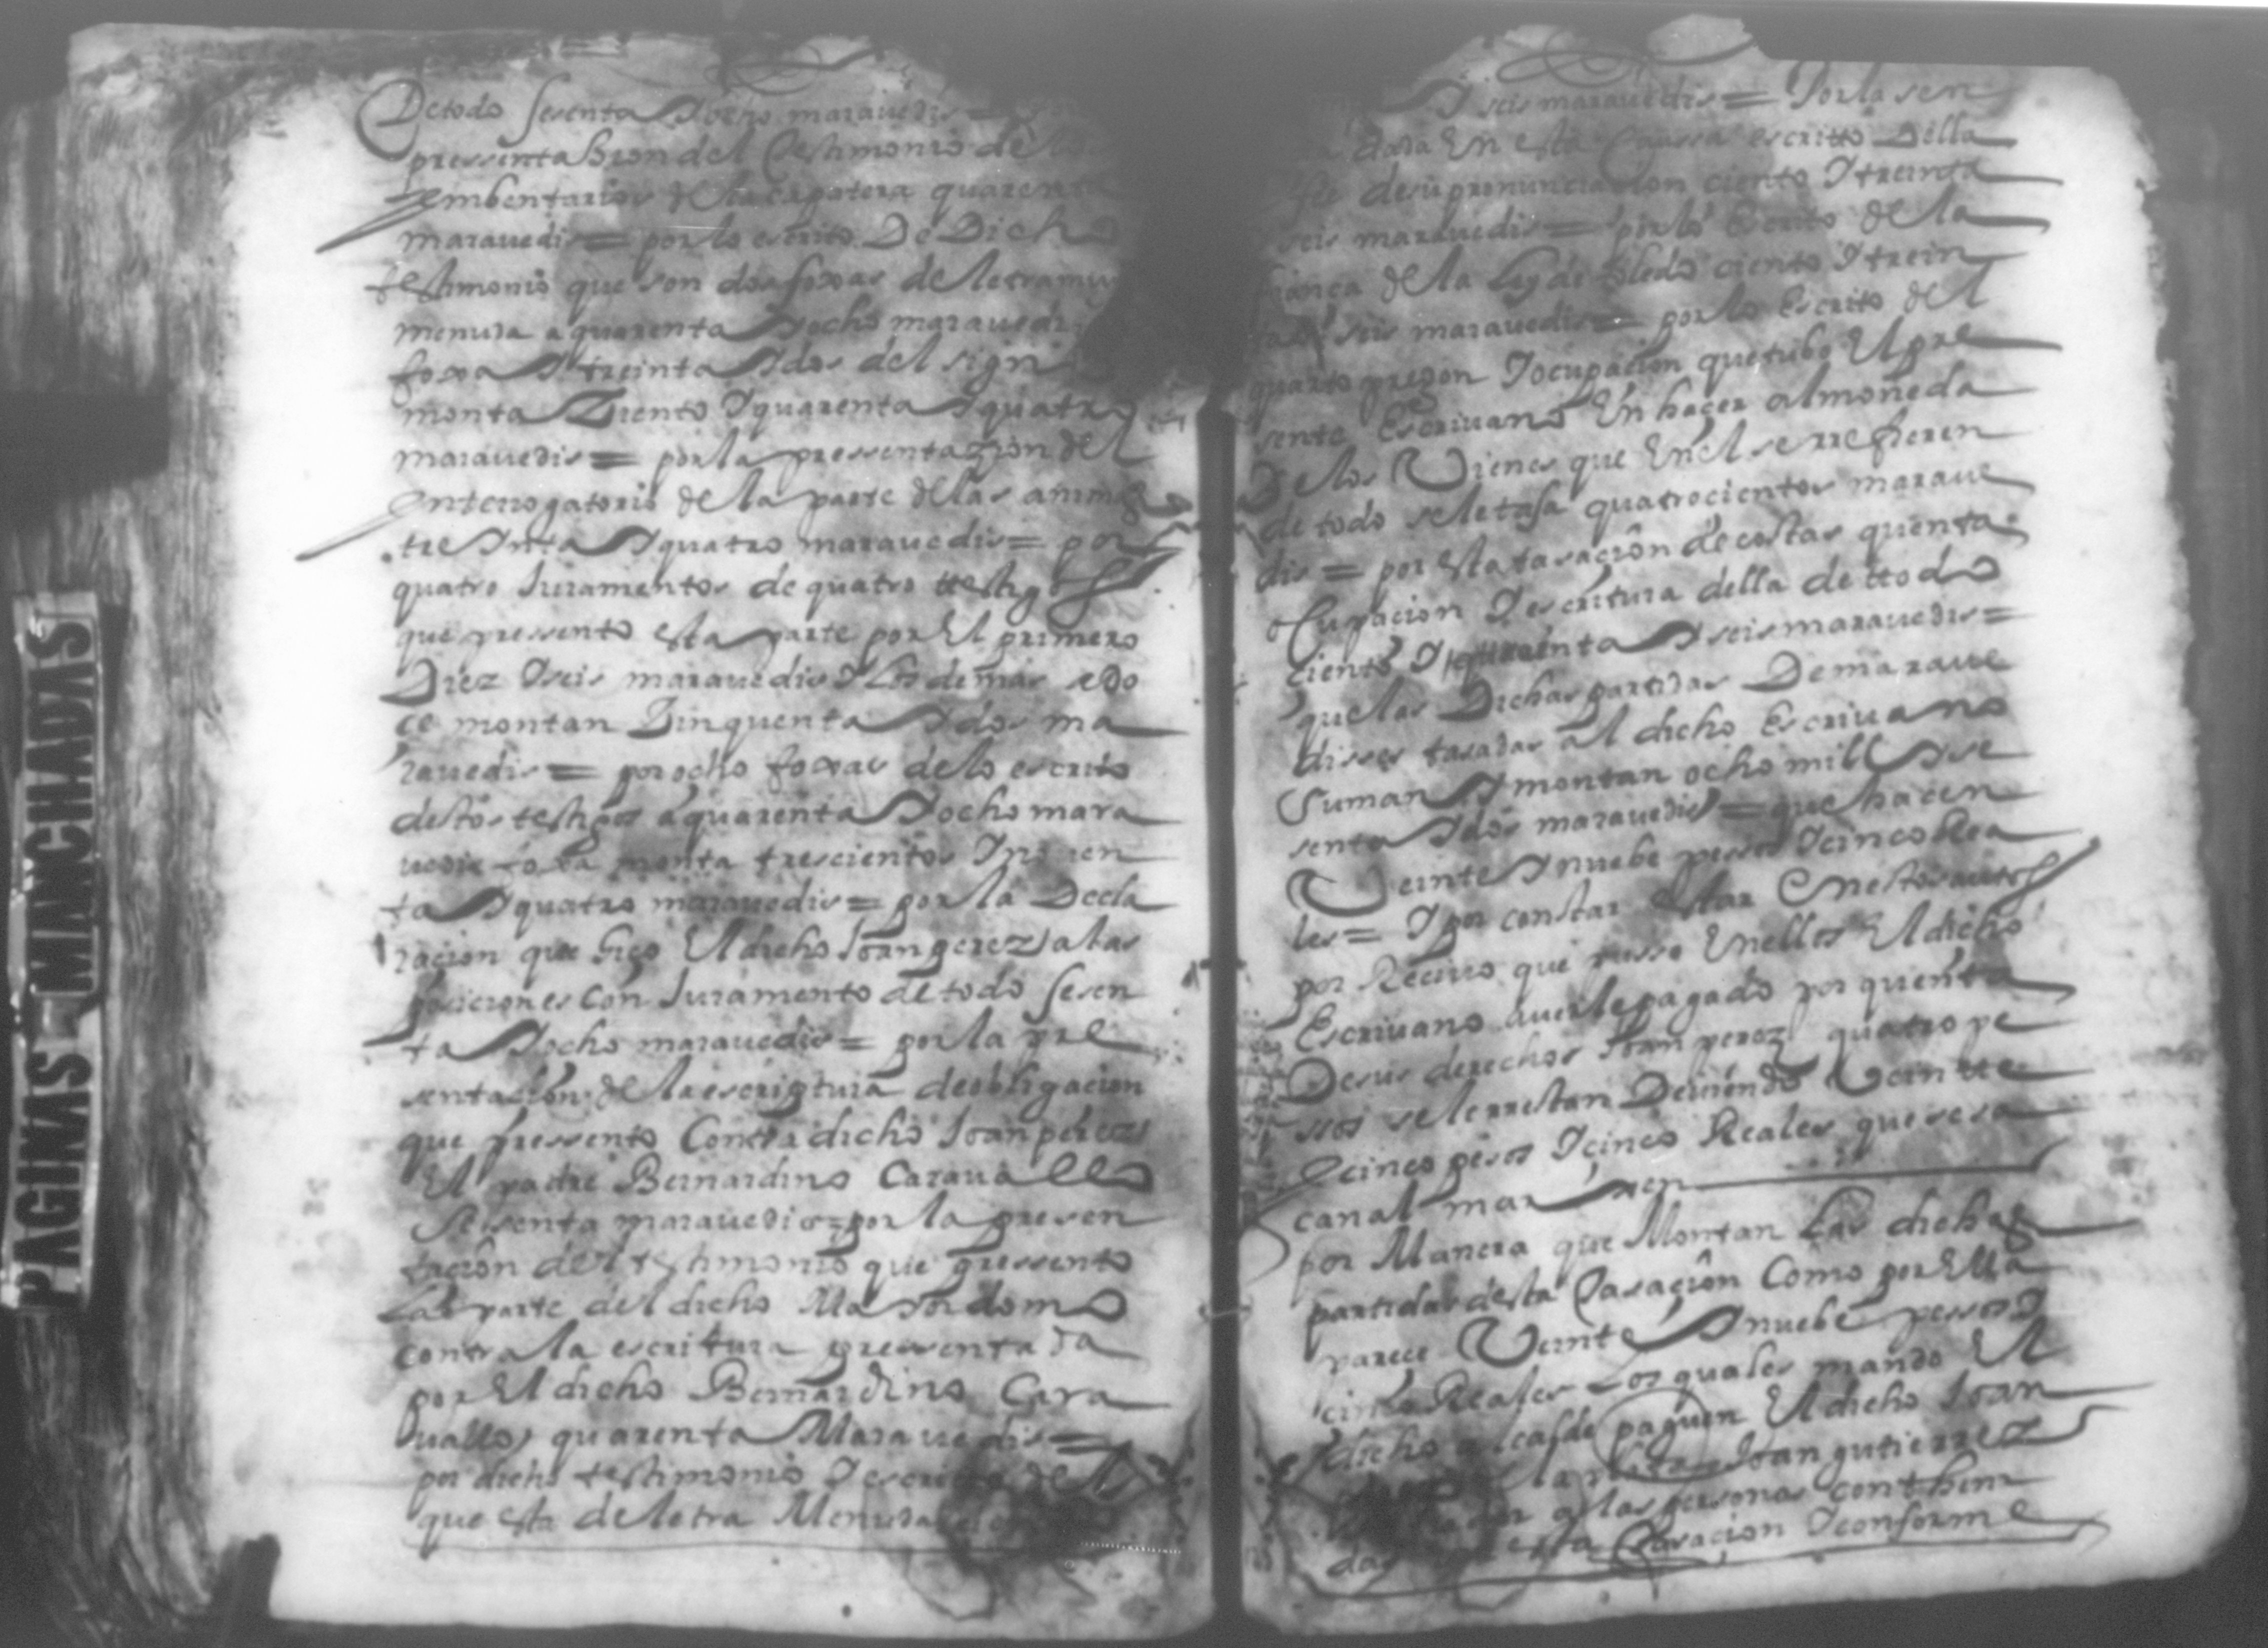 De todo sesenta Y ocho maravedis =
pressentaBion del testimonio de los
embentarios de la capatera quarenta
maravedis = por lo escrito De Dicho
testimonio que son dos foxas de letra muy
menuda a quarenta Y ocho maravedis
foxa Y treinta Y dos del signo
monta Ziento Y quarenta Y quatro
maravedis = por la pressentazion del
Interrogatorio de la parte de las animas
treynta Y quatro maravedis = por
quatro Juramentos de quatro ttestigos
que pressento esta parte por El primero
Diez Y seis maravedis Y Los demas a Do
ce montan Zinquenta Y dos ma
ravedis = por ocho foxas de lo escrito
destos testigos a quarenta Y ocho mara
vedis foxa monta trescientos Y ochen
ta Y quatro maravedis = por la Decla
racion que hiço El dicho Joan perez a las
posiciones Con Juramento de todo sesen
ta Y ocho maravedis = por la pre
sentacion de la escriptura de obligacion
que pressento Contra dicho Joan perez
El padre Bernardino Caravallo
sesenta maravedis = por la presen
tacion del testimonio que pressento
La parte del dicho Mayordomo
contra la escritura pressentada
por El dicho Bernardino Cara
vallo quarenta Maravedis =
por dicho testimonio Y escrito del
que esta de letra Menuda
Y seis maravedis = Por la sen
dada En esta Caussa escritto Della
fee de su pronunciacion ciento Y treinta
seis maravedis = por lo Escrito de la
fiança de la Ley de toledo ciento Y trein
ta Y seis maravedis = por lo Escrito del
quarto pregon Y ocupacion que tubo El pre
sente Escrivano En haçer almoneda
De los Vienes que En el se rrefieren
de todo se le tasa quatrocientos marave
dis = por esta tasacion de costas quenta
ocupacion Y escritura della de ttodo
ciento Y Y seis maravedis =
que las Dichas partidas De marave
disses tasadas al dicho Escrivano
Suman Y montan ocho mill Y se
senta Y dos maravedis = que hacen
Veinte Y nuebe pessos Y cinco Rea
les = Y por constar Estar En estos autos
por Recivo que pusso En ellos El dicho
Escrivano averle pagado por quenta
De sus derechos Joan perez quatro pe
ssos se le rrestan Deviendo Veintte
Y cinco pesos Y cinco Reales que se sa
can al marxen
por Manera que Montan Las dichas
partidas desta Tasacion Como por Ella
parece Veinte Y nuebe pessos Y
cinco Reales Los quales mando El
dicho alcalde paguen El dicho Joan
la mitad Joan gutierrez
a las personas conthini
das esta Tasacion Y conforme